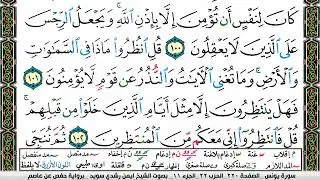 كَانَ لِنَفْسٍ أَن تُؤْمِنَ إِلَّا بِإِذْنِ ٱللَّهِ ۚ وَيَجْعَلُ ٱلرِّجْسَ
عَلَى ٱلَّذِينَ لَا يَعْقِلُونَ ١٠٠ قُلِ ٱنظُرُوا۟ مَاذَا فِى ٱلسَّمَٰوَٰتِ
وَٱلْأَرْضِ ۚ وَمَا تُغْنِى ٱلْءَايَٰتُ وَٱلنُّذُرُ عَن قَوْمٍ لَّا يُؤْمِنُونَ ١٠١
فَهَلْ يَنتَظِرُونَ إِلَّا مِثْلَ أَيَّامِ ٱلَّذِينَ خَلَوْا۟ مِن قَبْلِهِمْ ۚ
قُلْ فَٱنتَظِرُوٓا۟ إِنِّى مَعَكُم مِّنَ ٱلْمُنتَظِرِينَ ١٠٢ ثُمَّ نُنَجِّى
سورة يونس الصفحة ٢٢٠ الحزب ٢٢ الجزء ١١ بصوت الشيخ أيمن رشدي سويد - برواية حفص عن عاصم